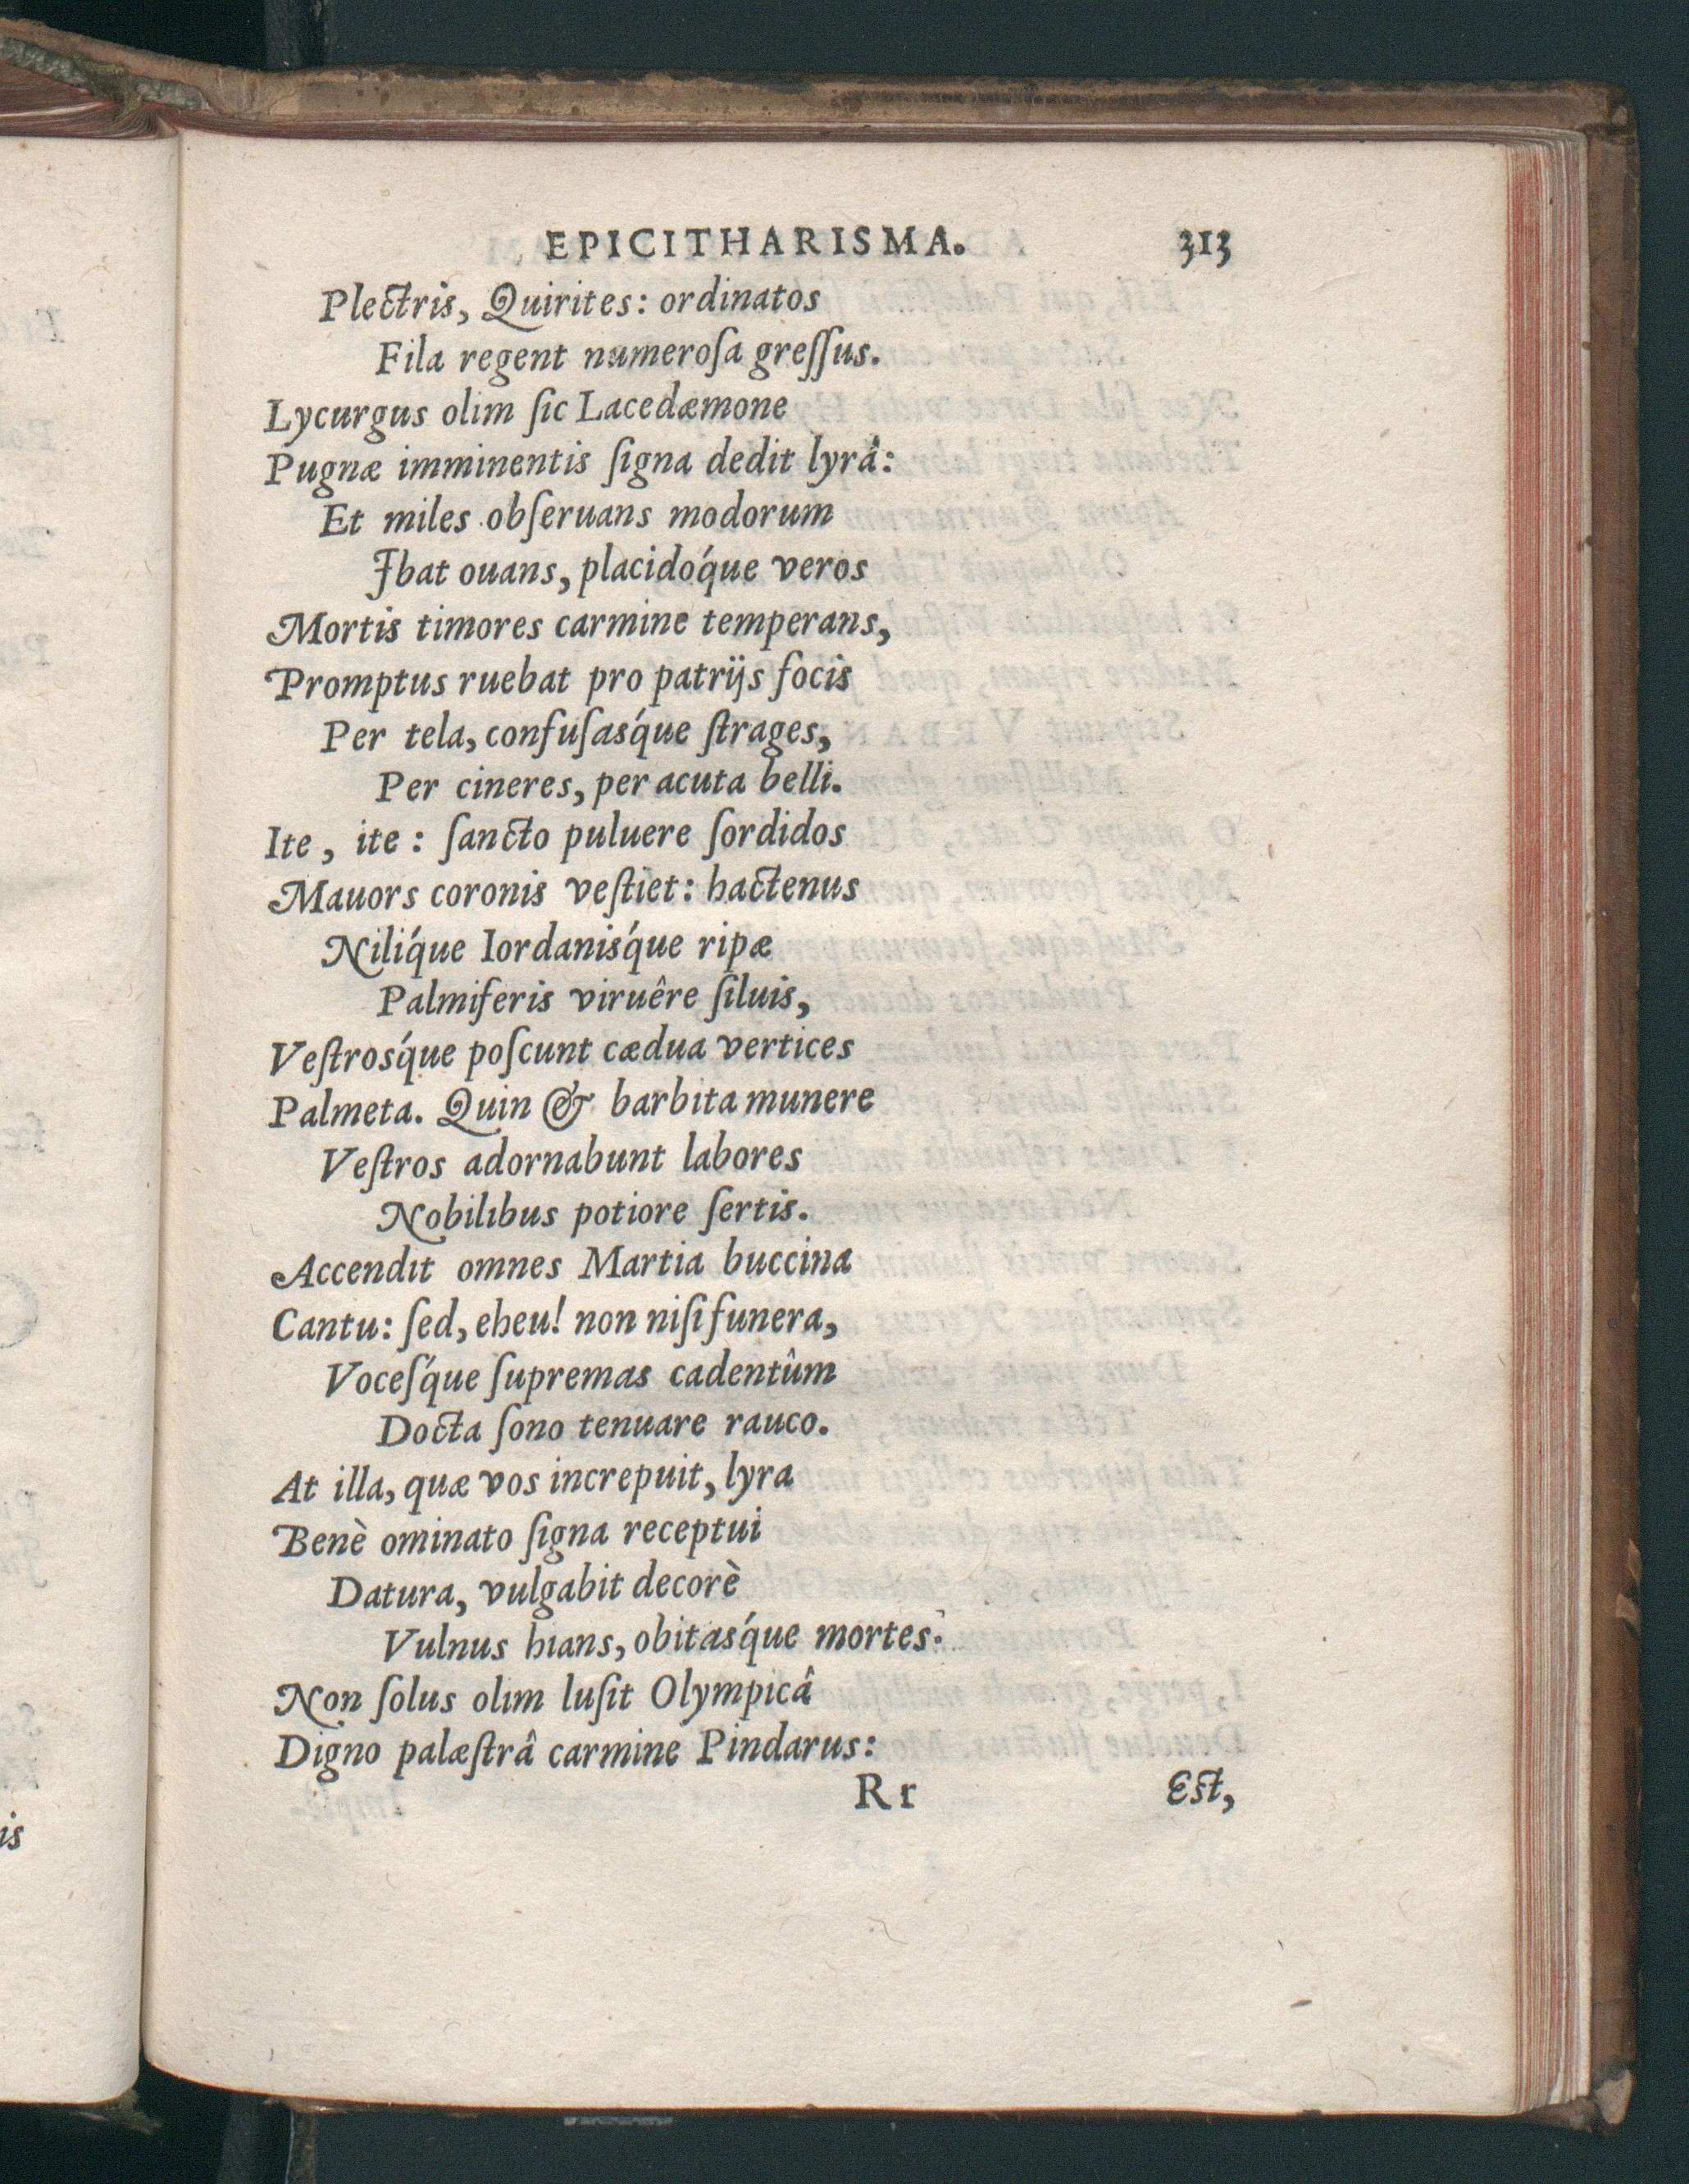 EPICITHARISMA. 313
Plectris, Quirites: ordinatos
Fila regent numeroſa greſſus.
Lycurgus olim ſic Lacedæmone
Pugnæ imminentis ſigna dedit lyrâ:
Et miles obſeruans modorum
Ibat ouans, placidóque veros
Mortis timores carmine temperans,
Promptus ruebat pro patrijs focis
Per tela, confuſasq́ue ſtrages,
Per cineres, per acuta belli.
Ite, ite: ſancto puluere ſordidos
Mauors coronis veſtiet: hactenus
Niliq́ue Iordanisq́ue ripæ
Palmiferis viruêre ſiluis,
Veſtrosq́ue poſcunt cædua vertices
Palmeta. Quin & barbita munere
Veſtros adornabunt labores
Nobilibus potiore ſertis.
Accendit omnes Martia buccina
Cantu: ſed, eheu! non niſi funera,
Voceſq́ue ſupremas cadentûm
Docta ſono tenuare rauco.
At illa, quæ vos increpuit, lyra
Benè ominato ſigna receptui
Datura, vulgabit decorè
Vulnus hians, obitasq́ue mortes.
Non ſolus olim luſit Olympicâ
Digno palæſtrâ carmine Pindarus:
Rr Eſt,
is